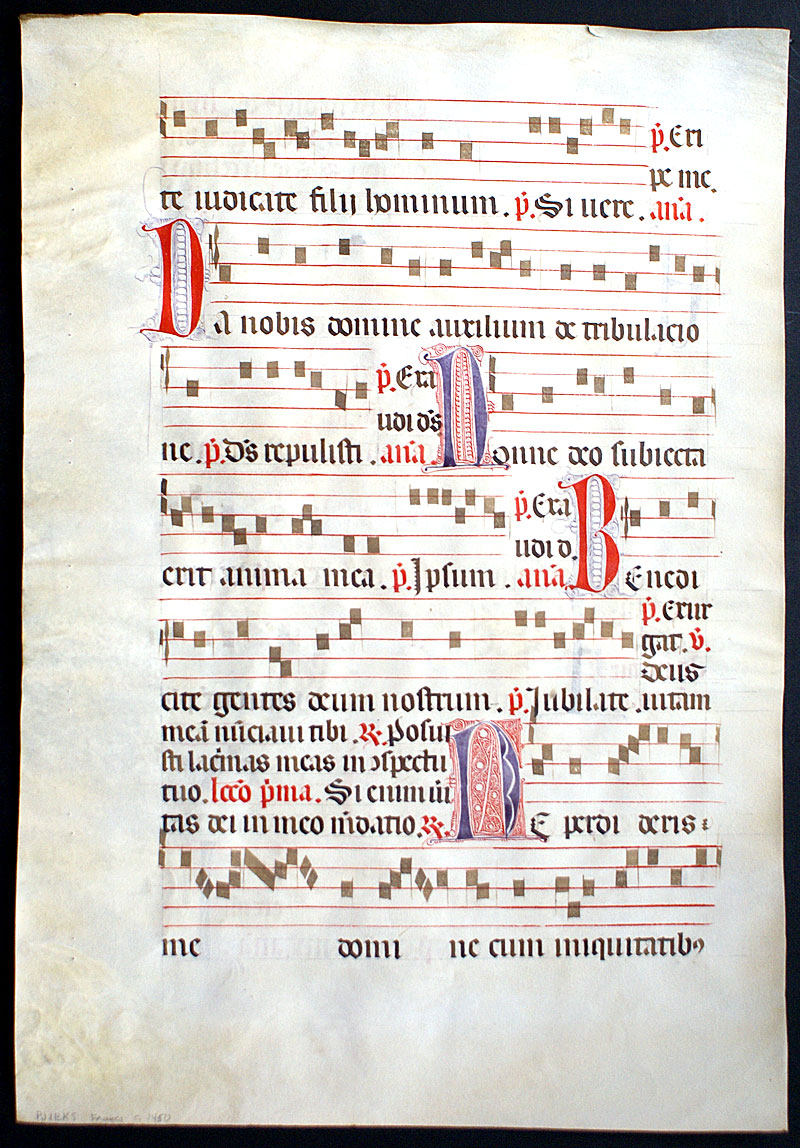 p̄. Eri
pe me.
te iudicate filij hominum. p̄. Si uere. an̄a.
DA nobis domine auxilium de tribulacio
p̄. Exa
udi d̄s
ne. p̄. D̄s repulisti. an̄a. Nonne deo subiecta
p̄. Exa
udi d̄.
erit anima mea. p̄. Ipsum. an̄a. BEnedi
p̄. Exur
gat. v̄.
deus
cite gentes deum nostrum. p̄. Jubilate. uitam
meā nūciaui tibi. R̷. Posui
sti lac̄mas meas in ɔspectu
tuo. lcc̄o p̄ma. Si enim ūi
tas dei in meo m̄datio. R̷. NE perdideris
me domine cum iniquitatibꝰ
France c. 1450